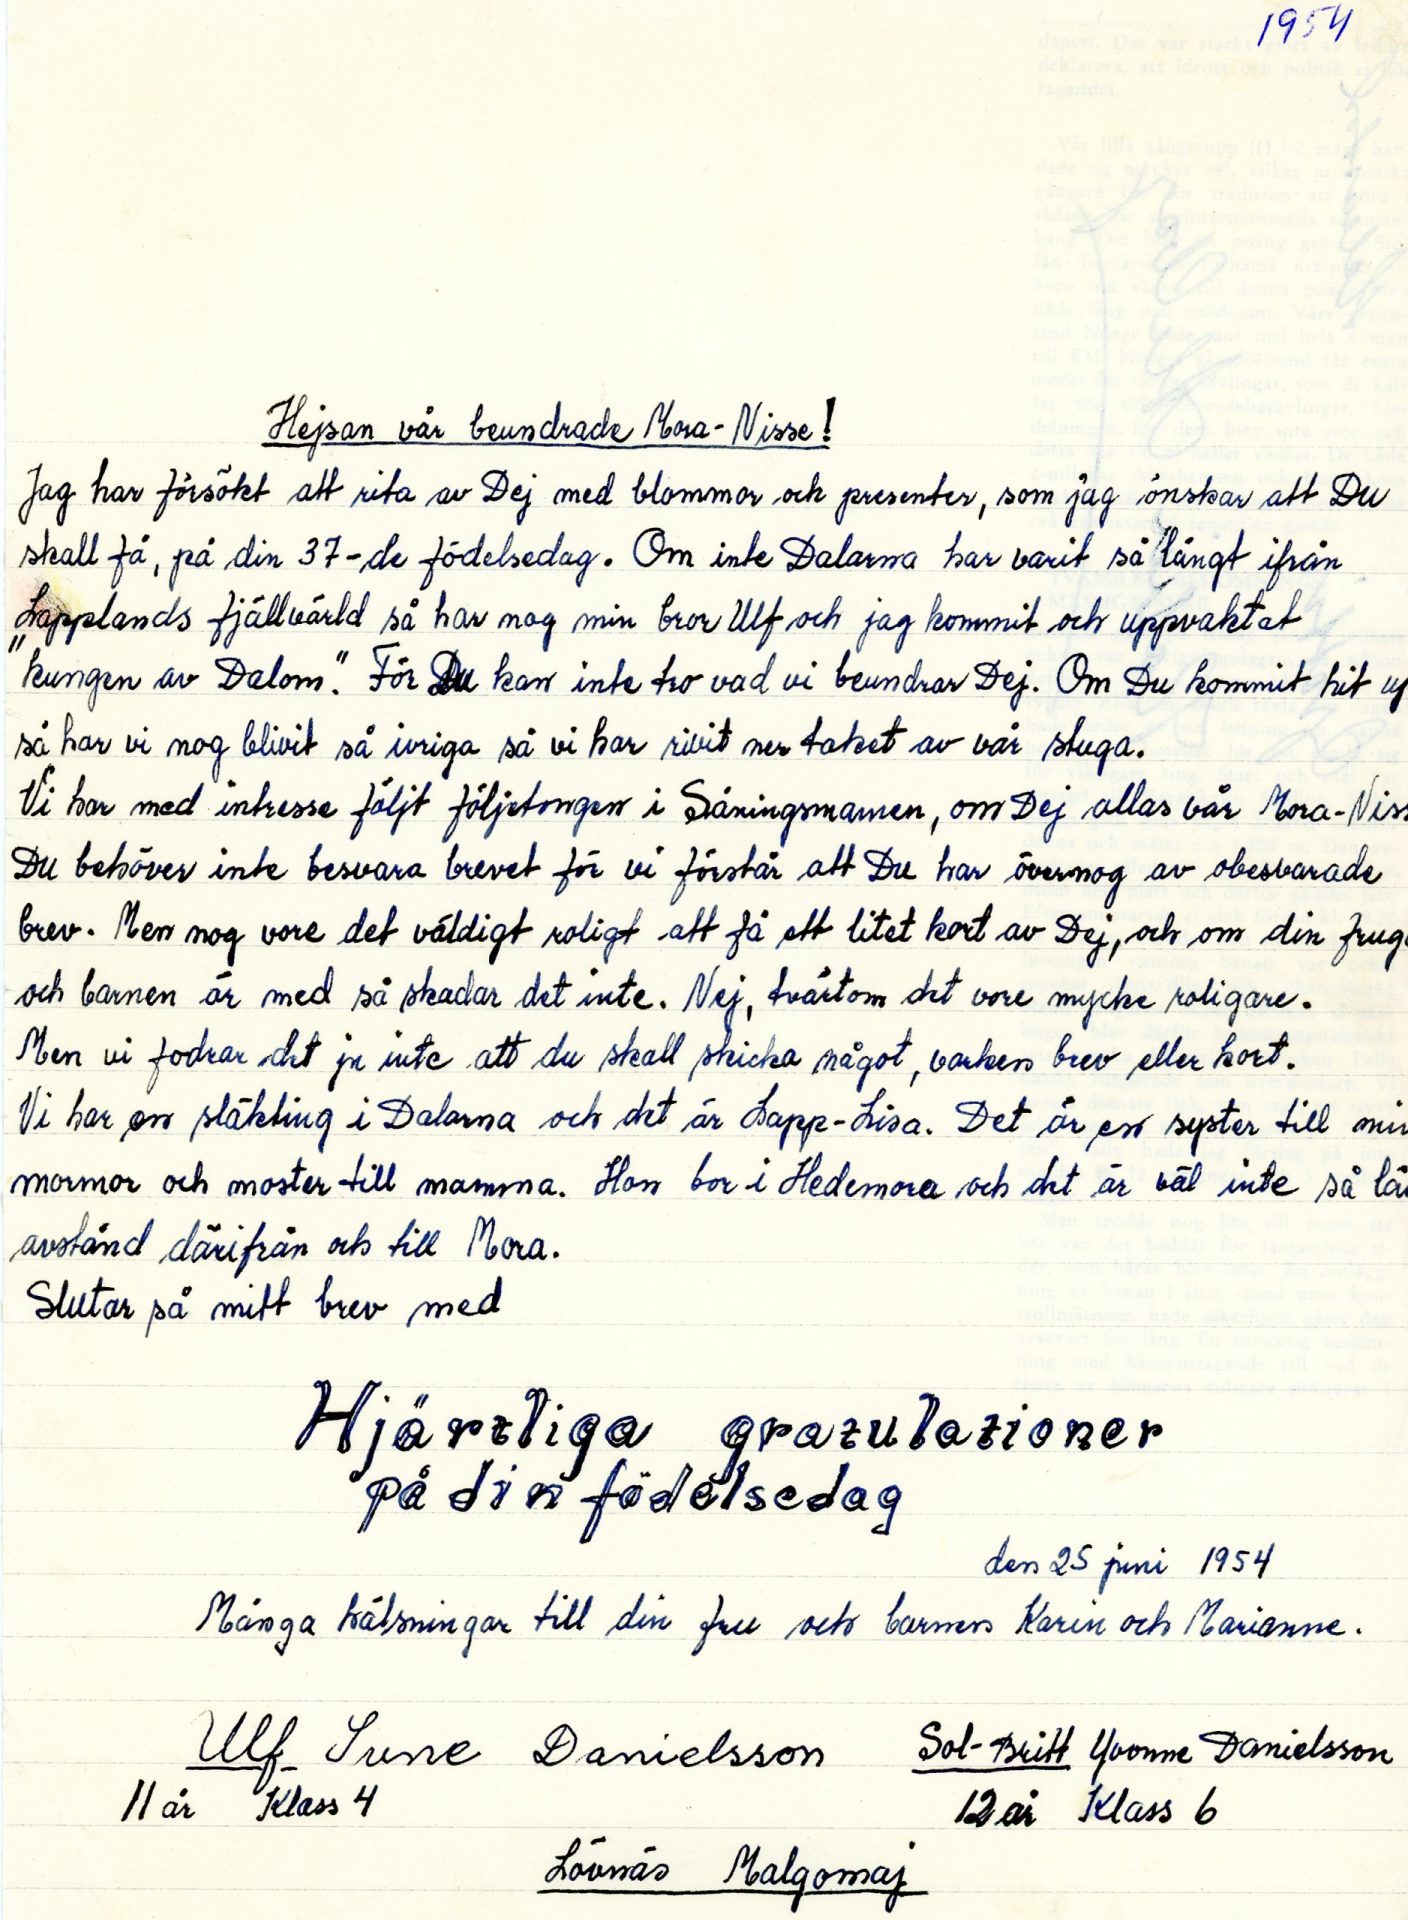 1954
Hejsan vår beundrade Mora-Nisse!
Jag har försökt att rita av Dej med blommor och presenter, som jag önskar att Du
skall få, på din 37-de födelsedag. Om inte Dalarna har varit så långt ifrån
Lapplands fjällvärld så har nog min bror Ulf och jag kommit och uppvaktat
"kungen av Dalom". För Du kan inte tro vad vi beundrar Dej. Om Du kommit hit up
så har vi nog blivit så ivriga så vi har rivit ner taket av vår stuga.
Vi har med intresse följt följetongen i Såningsmannen, om Dej allas vår Mora-Niss
Du behöver inte besvara brevet för vi förstår att Du har övernog av obesvarade
brev. Men nog vore det väldigt roligt att få ett litet kort av Dej, och om din frug
och barnen är med så skadar det inte. Nej, tvärtom det vore mycke roligare.
Men vi fodrar det ju inte att du skall skicka något, varken brev eller kort.
Vi har en släkting i Dalarna och det är Lapp-Lisa. Det är en syster till min
mormor och moster till mamma. Hon bor i Hedemora och det är väl inte så lån
avstånd därifrån och till Mora.
Slutar så mitt brev med
Hjärtliga gratulationer
på din födelsedag
den 25 juni 1954
Många hälsningar till din fru och barnen Karin och Marianne.
Ulf Sune Danielsson Sol-Britt Yvonne Danielsson
11 år Klass 4 12 år Klass 6
Lövnäs Malgomaj